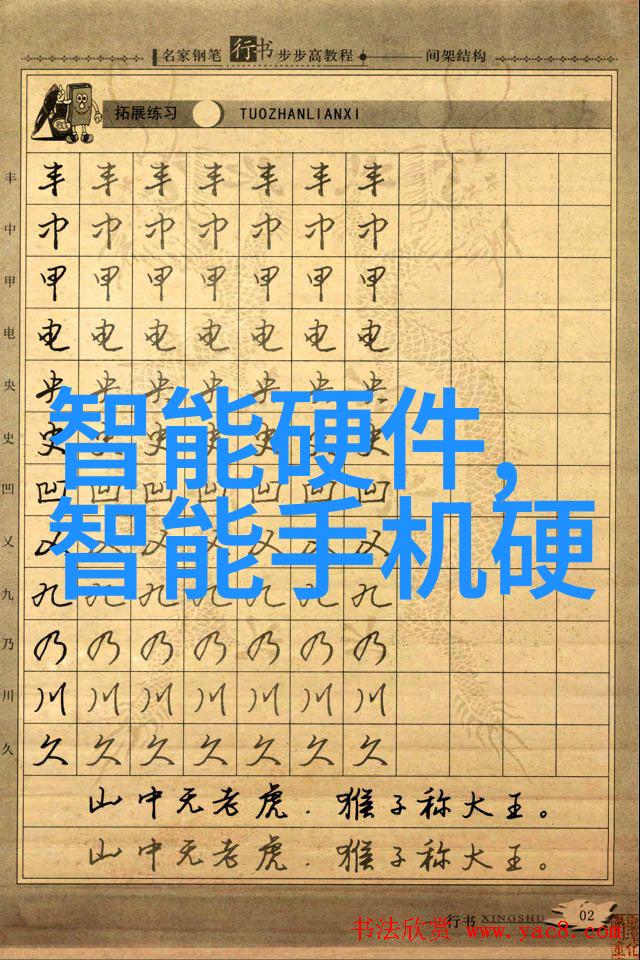 名家钢笔行书步步高教程 间架结构
拓展练习 TUOZHANLIANXI
丰 丰 丰 丰 丰 丰 丰 丰
中 中 中 中 中 中 中 中
甲 甲 甲 甲 甲 甲 甲 甲
电 电 电 电 电 电 电 电
央 央 央 央 央 央 央 央
史 史 史 史 史 史 史 史
智能硬件，
凹 凹 凹 凹 凹 凹 凹 凹
乂 乂 乂 乂 乂 乂 乂 乂
智能手机硬
九 九 九 九 九 九 九 九
乃 乃 乃 乃 乃 乃 乃 乃
川 川 川 川 川 川 川 川
久 久 久 久 久 久 久 久
山中无老虎．猴子称大王。
山中无老虎．猴子称大王。
行书 XINGSHU 02
书法欣赏 www.yac8.com